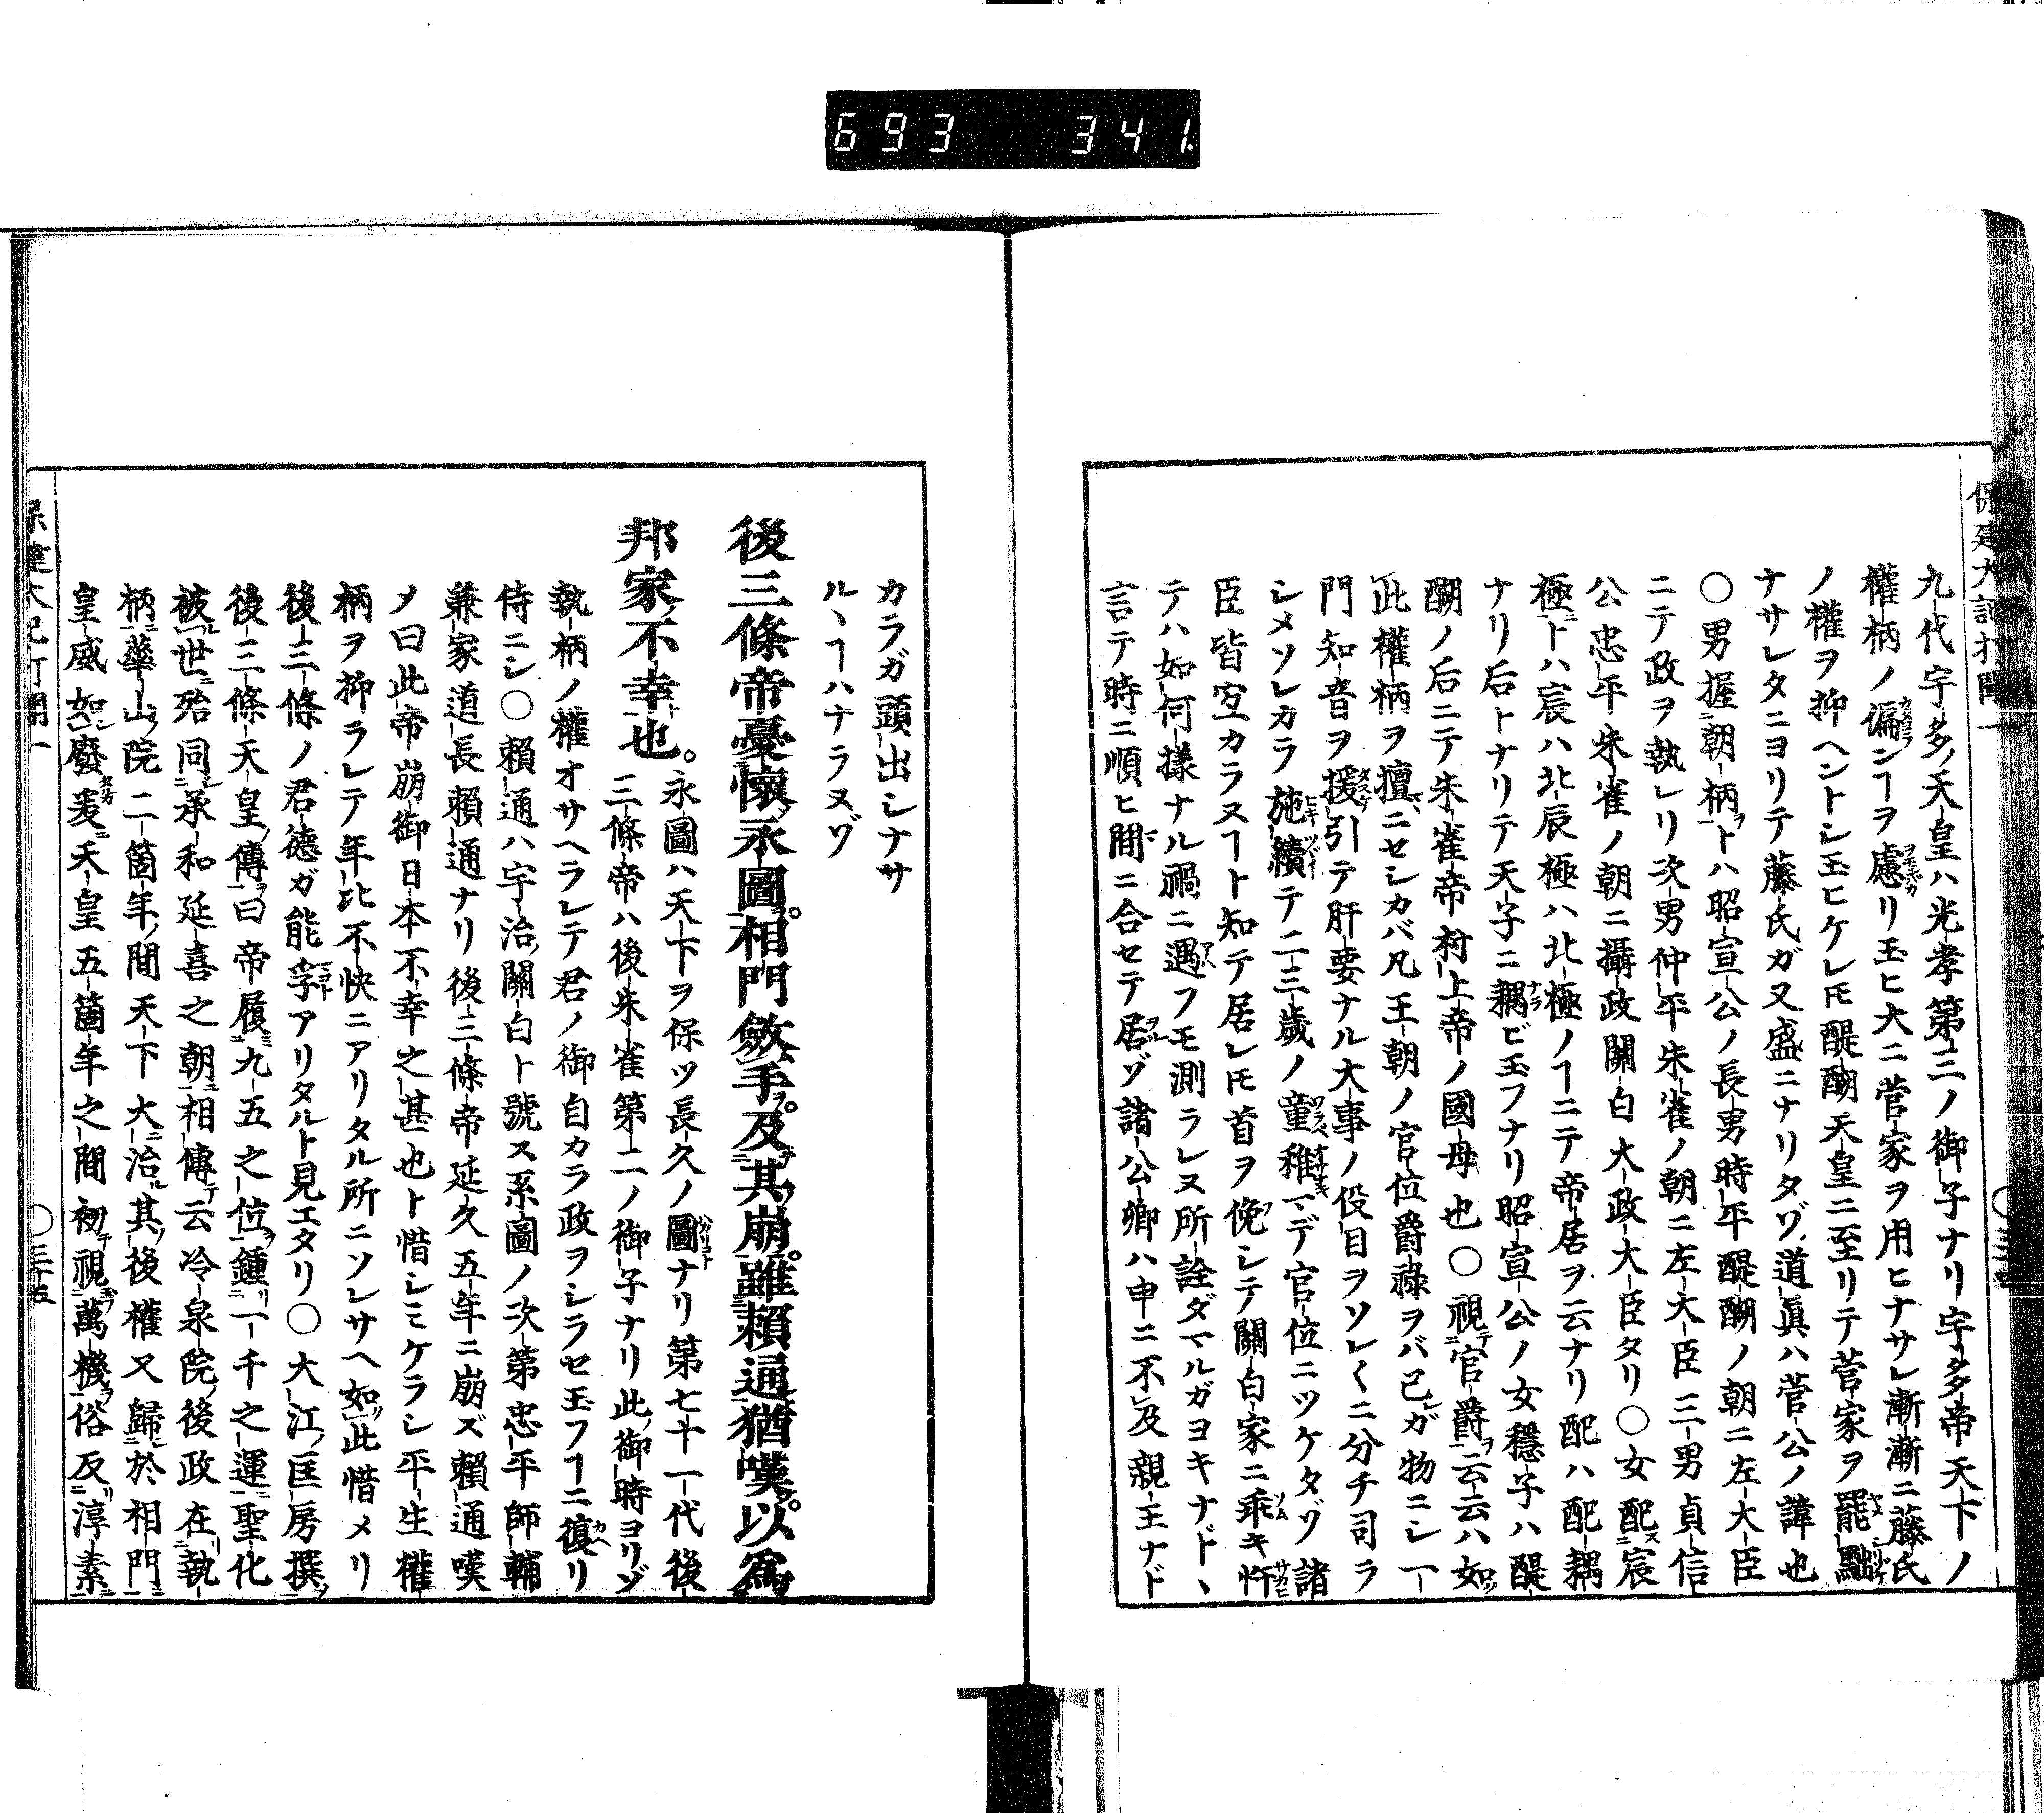 693 341.
保建大記打聞一
九代宇多ノ天皇ハ光孝第三ノ御子ナリ宇多帝天下ノ
權柄ノ偏ンヿヲ慮リ玉ヒ大ニ菅家ヲ用ヒナサレ漸漸ニ藤氏
ノ權ヲ抑ヘントシ玉ヒケレ𪜈醍醐天皇ニ至リテ菅家ヲ罷黜
ナサレタニヨリテ藤氏ガ又盛ニナリタゾ道眞ハ菅公ノ諱也
〇男握朝柄トハ昭宣公ノ長男時平醍醐ノ朝ニ左大臣
ニテ政ヲ執レリ次男仲平朱雀ノ朝ニ左大臣三男貞信
公忠平朱雀ノ朝ニ攝政關白大政大臣タリ〇女配宸
極トハ宸ハ北辰極ハ北極ノヿニテ帝居ヲ云ナリ配ハ配耦
ナリ后トナリテ天子ニ耦ビ玉フナリ昭宣公ノ女穩子ハ醍
醐ノ后ニテ朱雀帝村上帝ノ國母也〇視官爵云云ハ如
此權柄ヲ擅ニセシカバ凡王朝ノ官位爵祿ヲバ己ガ物ニシ一
門知音ヲ援引テ肝要ナル大事ノ役目ヲソレ〱ニ分チ司ラ
シメソレカラ施續テ二三歳ノ童稚マデ官位ニツケタゾ諸
臣皆宜カラヌヿト知テ居レ𪜈首ヲ俛シテ關白家ニ乖キ忤
テハ如何樣ナル禍ニ遇フモ測ラレヌ所詮ダマルガヨキナドヽ
言テ時ニ順ヒ間ニ合セテ居ゾ諸公卿ハ申ニ不及親王ナド
カラガ頭出シナサ
ルヽヿハナラヌゾ
後三條帝憂懷永圖。相門斂手。及其崩。雖賴通猶嘆。以爲
邦家不幸也。
永圖ハ天下ヲ保ツ長久ノ圖ナリ第七十一代後
三條帝ハ後朱雀第二ノ御子ナリ此御時ヨリゾ
執柄ノ權オサヘラレテ君ノ御自カラ政ヲシラセ玉フヿニ復リ
侍ニシ〇賴通ハ宇治關白ト號ス系圖ノ次第忠平師輔
兼家道長賴通ナリ後三條帝延久五年ニ崩ズ賴通嘆
メ曰此帝崩御日本不幸之甚也ト惜シミケラシ平生權
柄ヲ抑ラレテ年比不快ニアリタル所ニソレサヘ如此惜メリ
後三條ノ君德ガ能孚アリタルト見エタリ〇大江匡房撰
後三條天皇傳曰帝履九五之位鍾一千之運聖化
被世殆同承和延喜之朝相傳云冷泉院後政在執
柄華山院二箇年間天下大治其後權又歸於相門
皇威如廢爰天皇五箇年之間初視萬機俗反淳素
保建大記打聞一
〇三十五